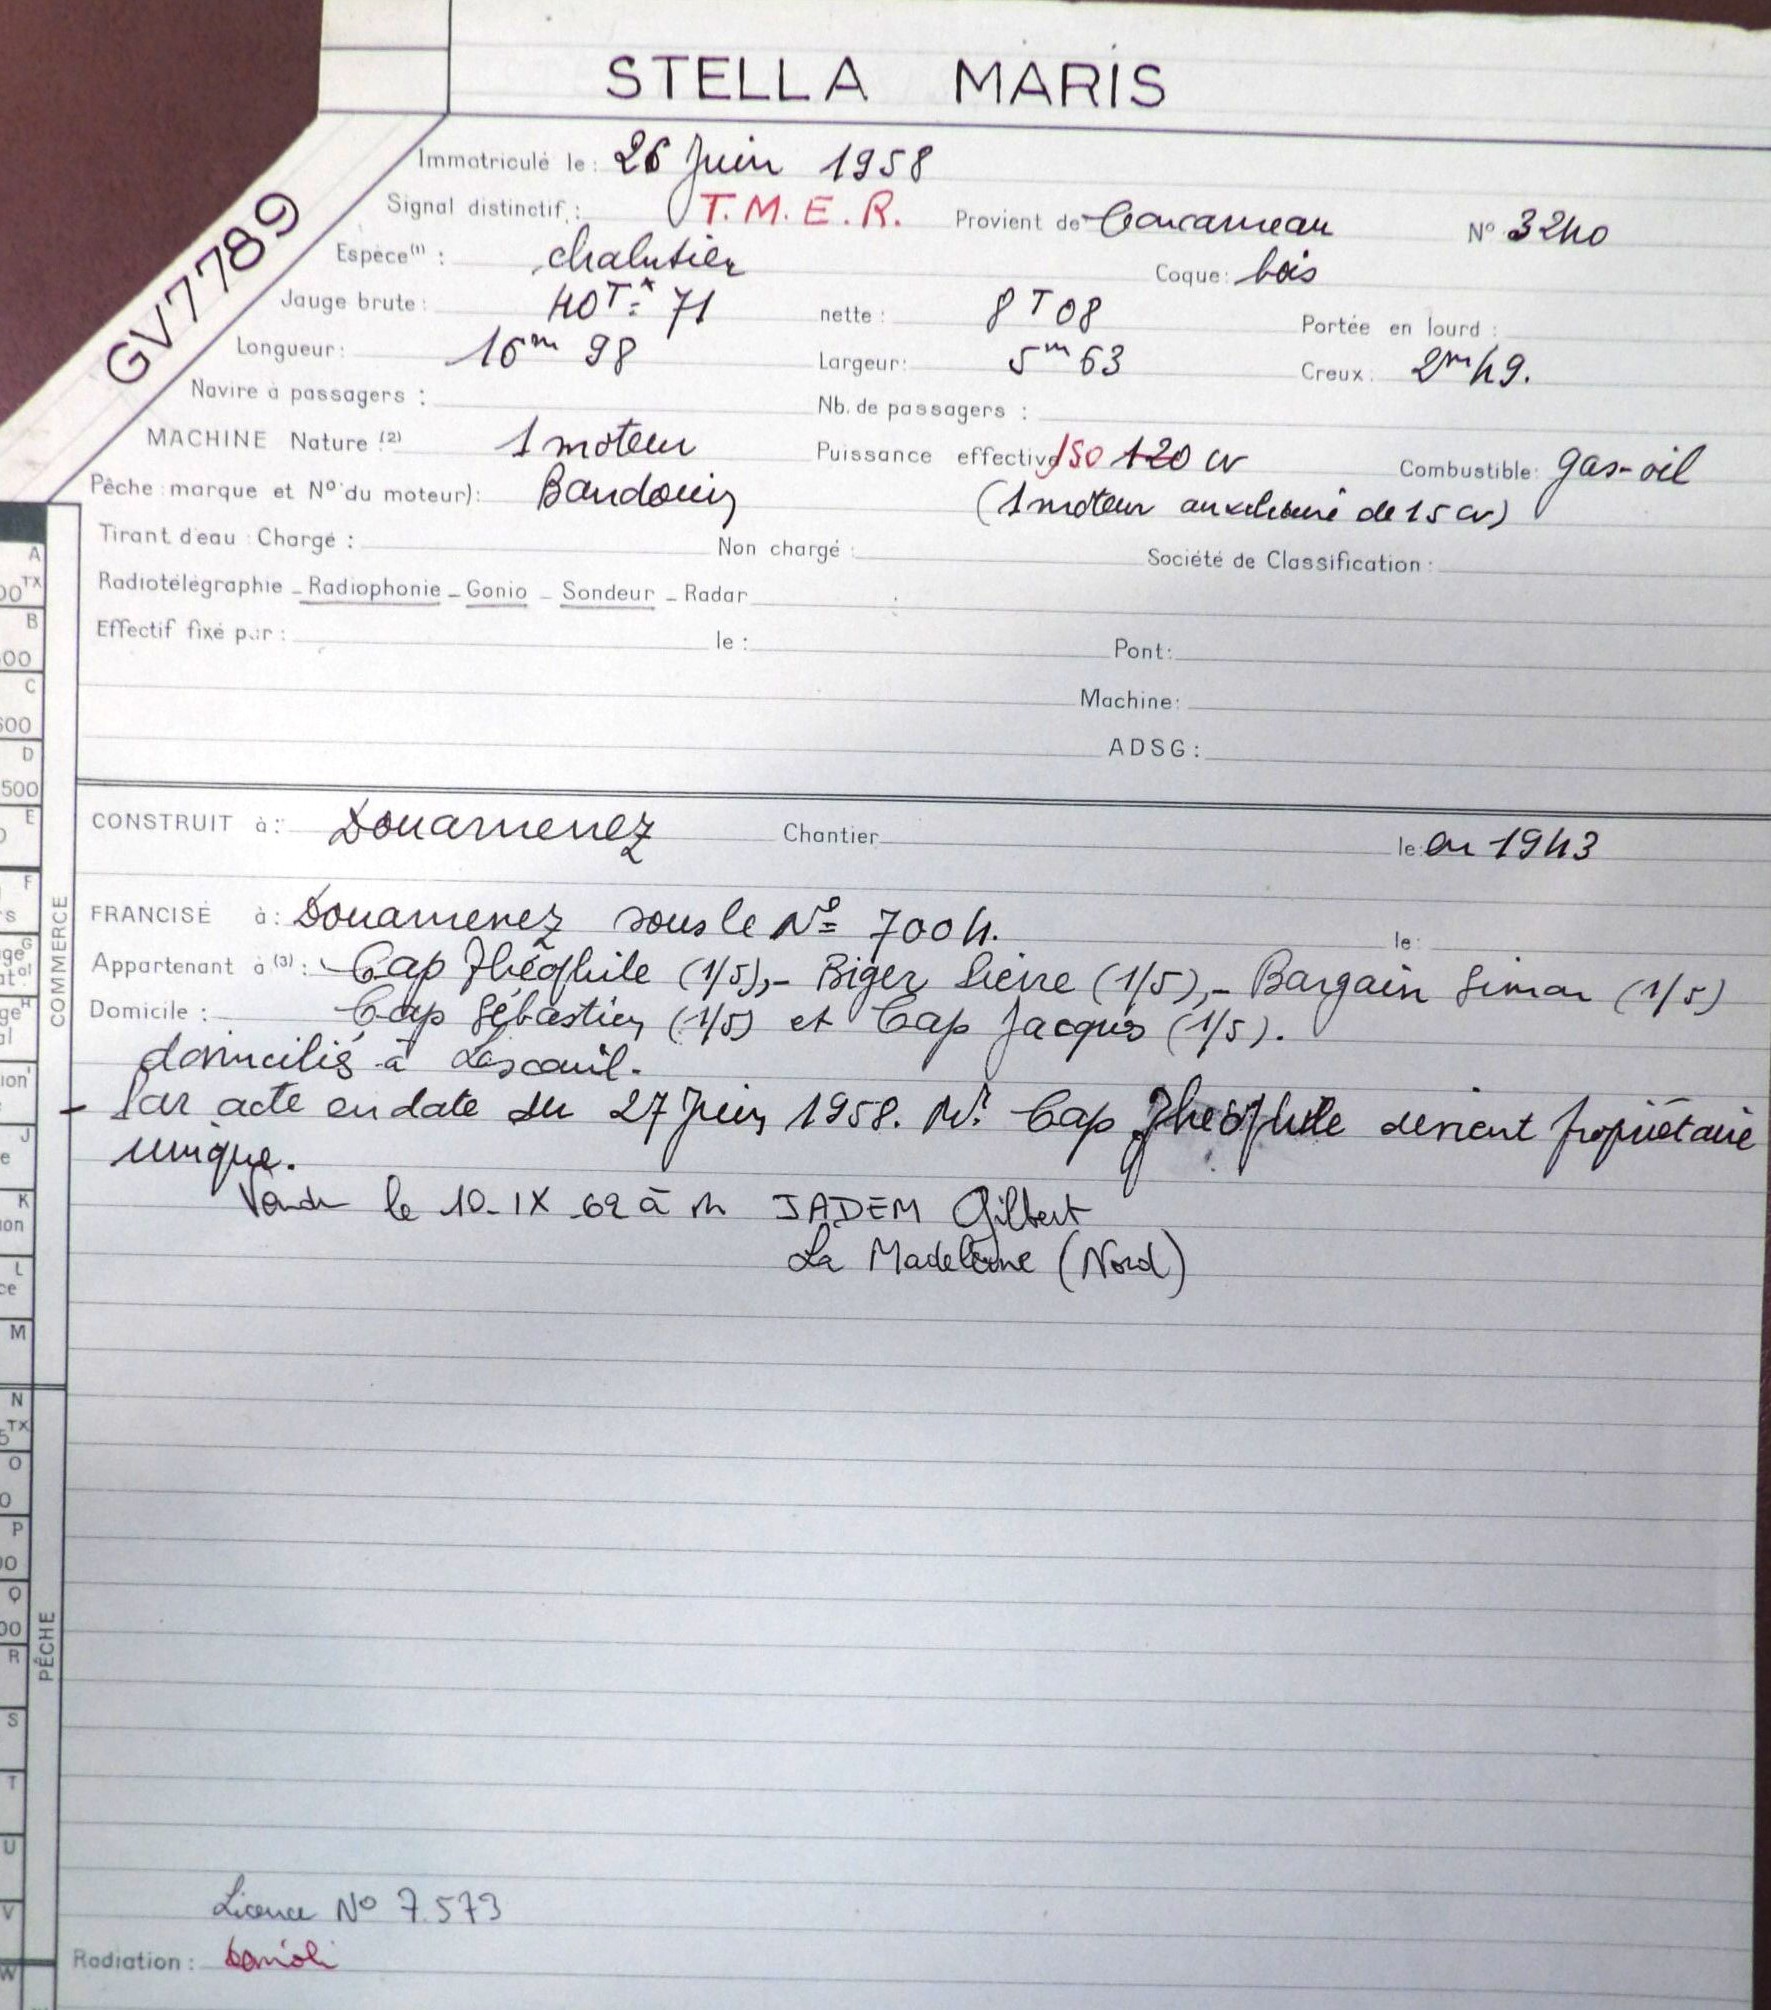 STELLA MARIS
GV7789
Immatriculé le : 26 Juin 1958
Signal distinctif : T.M.E.R. Provient de Concarneau N° 3240
Espèce (1) : chalutier Coque : bois
Jauge brute : 40Tx 71 nette : 8 T 08 Portée en lourd :
Longueur : 16m 98 Largeur : 5m 63 Creux : 2m 49.
Navire à passagers : Nb. de passagers :
MACHINE Nature (2) 1 moteur Puissance effective 150 120 cv Combustible : gas-oil
Pêche : marque et N° du moteur) : Baudouin (1 moteur auxiliaire de 15 cv)
Tirant d'eau : Chargé : Non chargé : Société de Classification :
Radiotélégraphie _ Radiophonie _ Gonio _ Sondeur _ Radar
Effectif fixé par : le : Pont :
Machine :
ADSG :
CONSTRUIT à : Douarnenez Chantier le : en 1943
FRANCISÉ à : Douarnenez sous le N° 7004. le :
Appartenant à (3) : Cap Théophile (1/5),- Biger Pierre (1/5),- Bargain Simon (1/5)
Domicile : Cap Sébastien (1/5) et Cap Jacques (1/5).
domiciliés à Lesconil.
- Par acte en date du 27 Juin 1958. Mr. Cap Théophile devient propriétaire
unique.
Vendu le 10-IX-62 à M JADEM Gilbert
La Madeleine (Nord)
Licence N° 7.573
Radiation :
COMMERCE
PÊCHE
A
B
C
D
E
F
G
H
J
K
L
M
N
O
P
Q
R
S
T
U
V
W